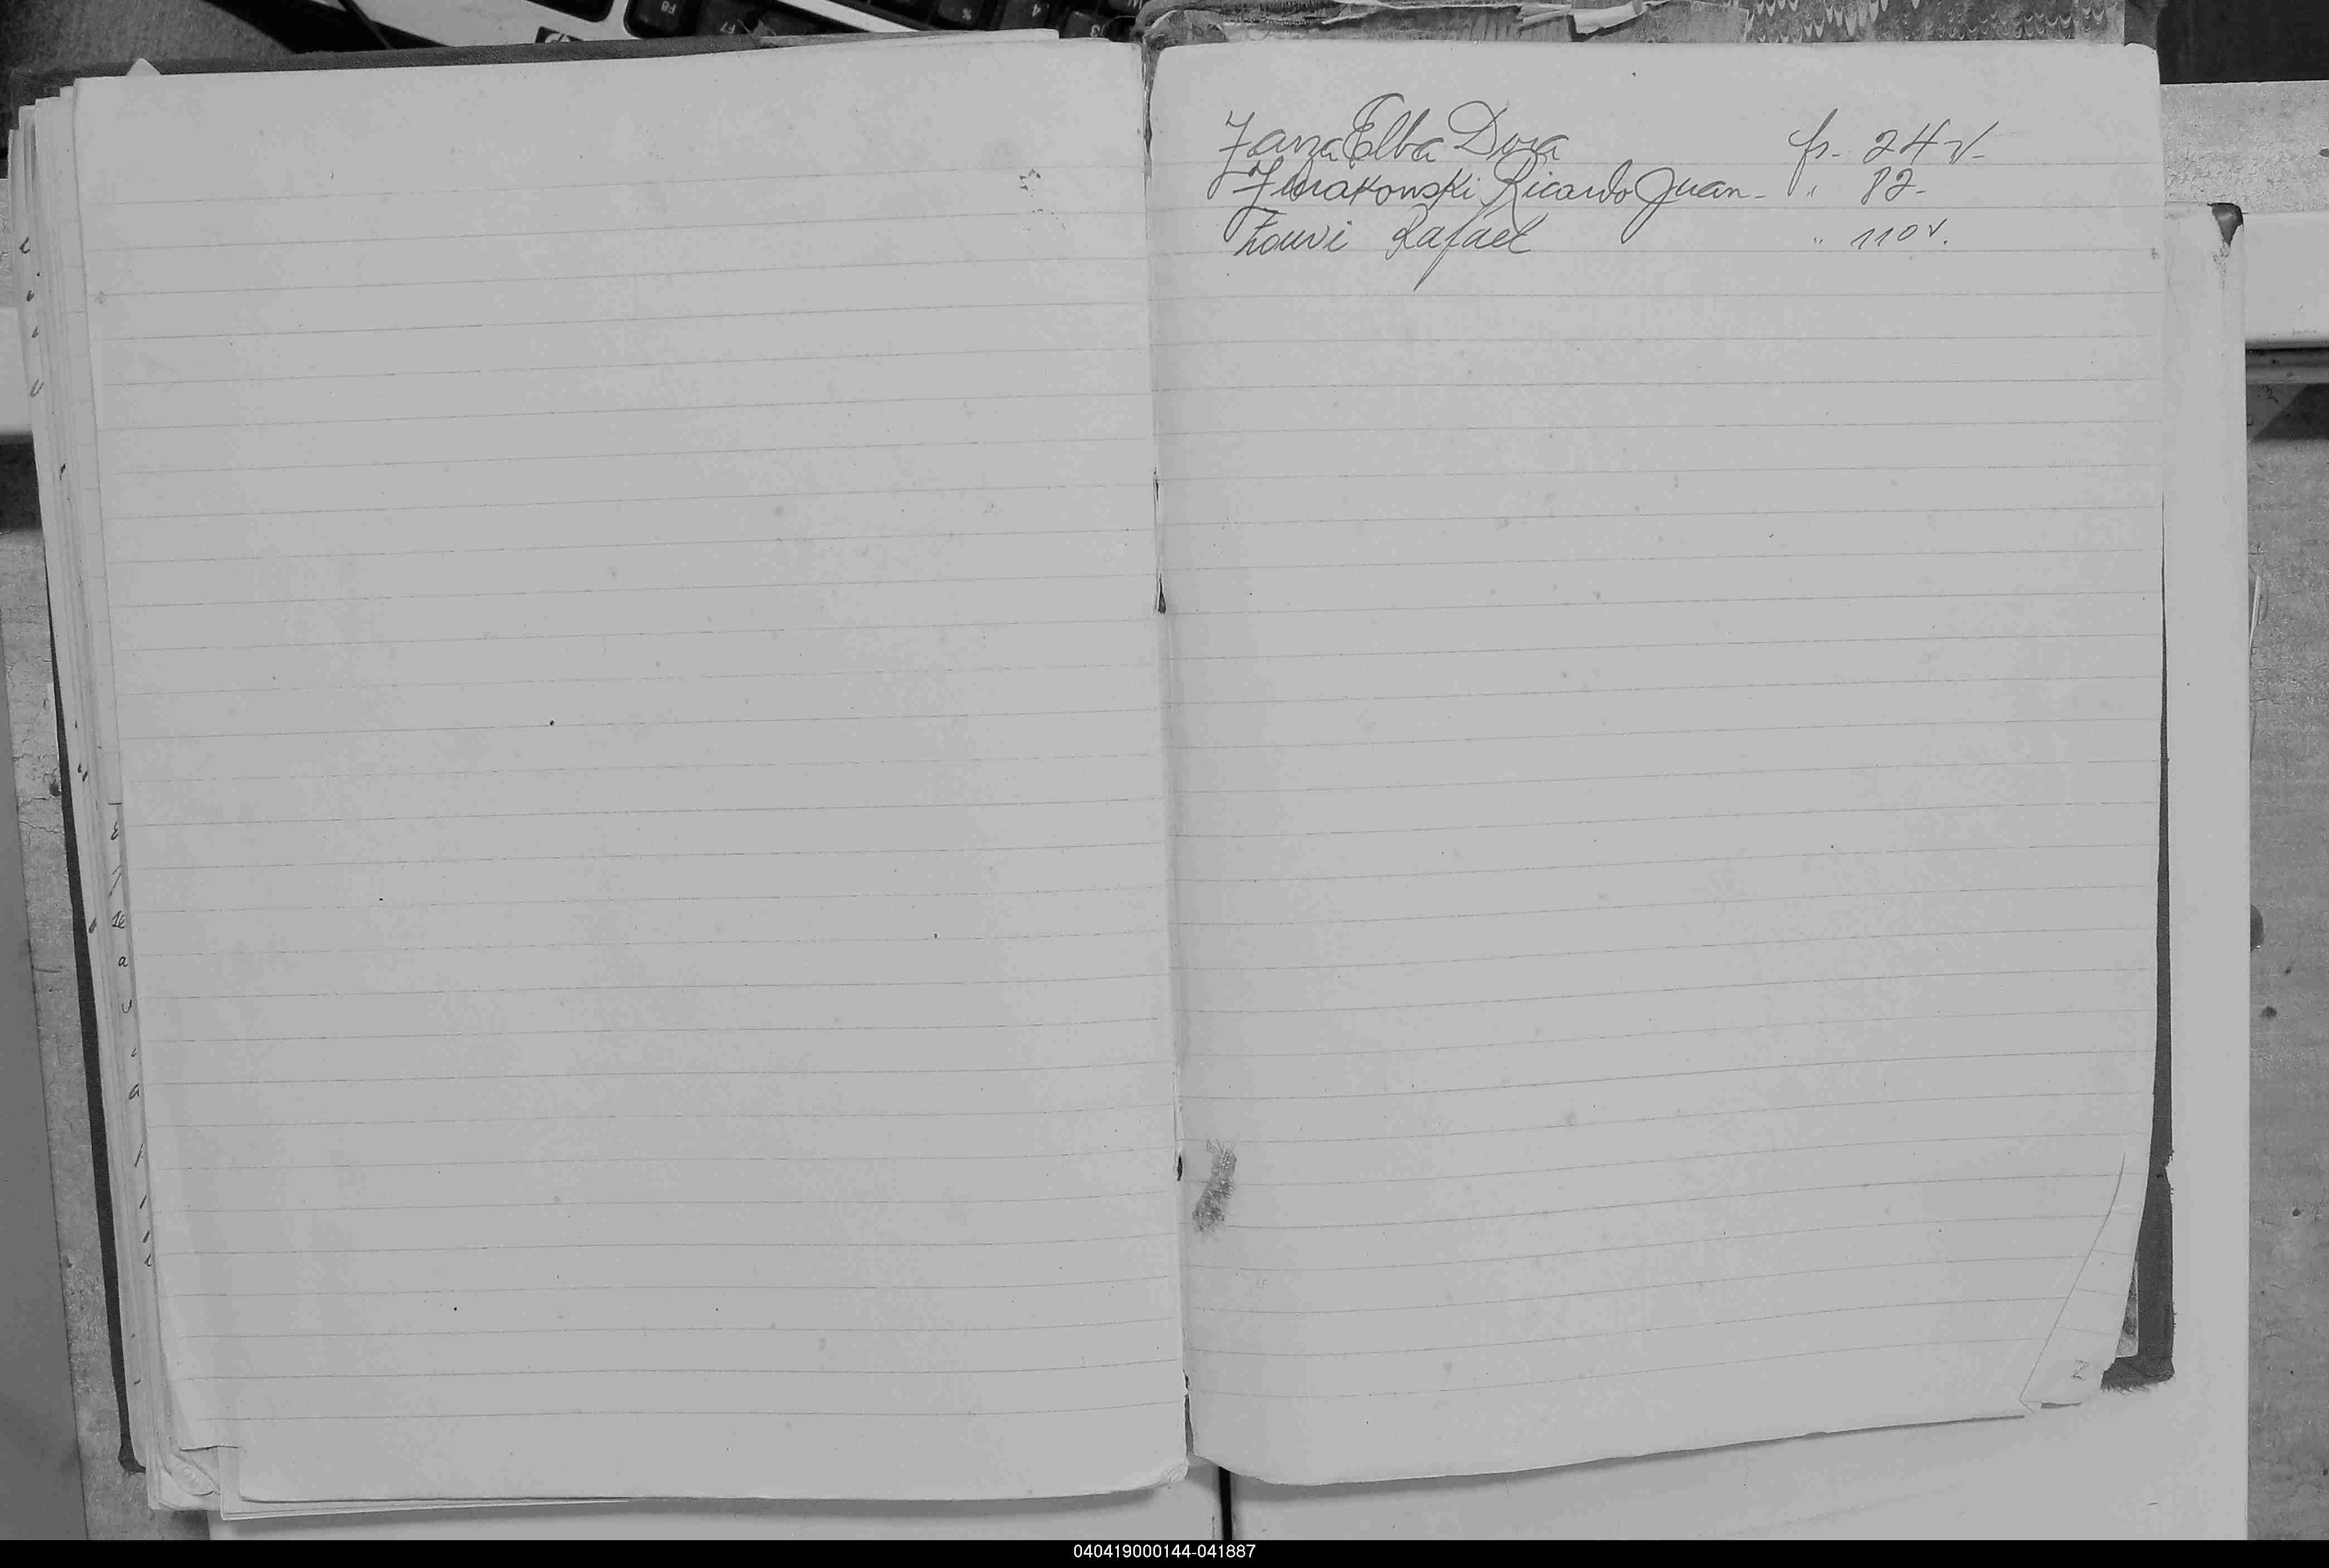 Zarza Elba Dora fs. 24 v.
Zurakowski Ricardo Juan - " 82-
Zouvi Rafael " 110 v.
Z
040419000144-041887